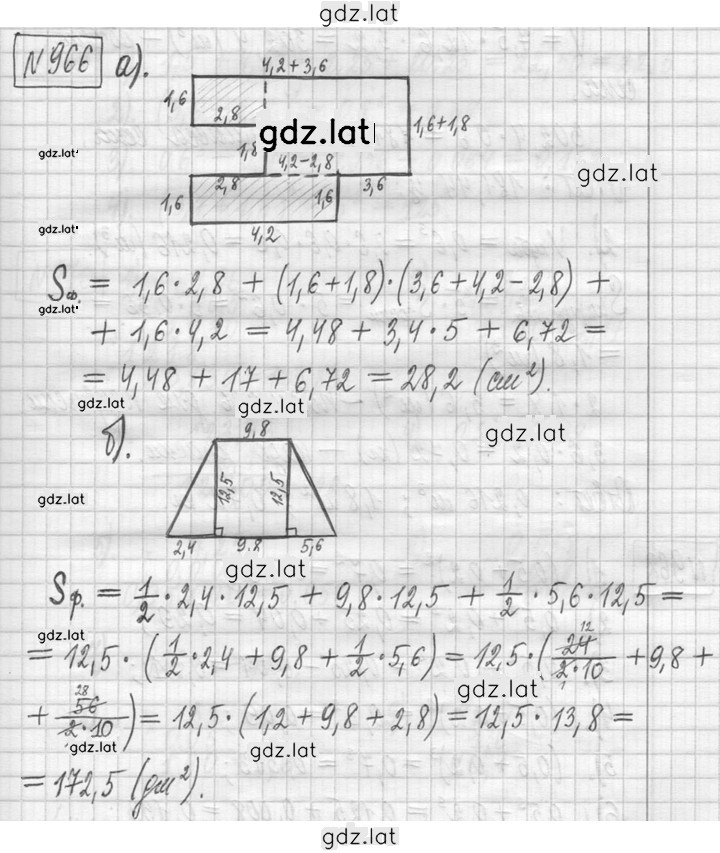 gdz.lat
№966 а).
4,2+3,6
1,6
2,8
gdz.lat
1,6+1,8
gdz.lat
1,8
4,2-2,8
gdz.lat
2,8
1,6
3,6
1,6
4,2
gdz.lat
Sф. = 1,6·2,8 + (1,6+1,8)·(3,6+4,2-2,8) +
gdz.lat
+ 1,6·4,2 = 4,48 + 3,4·5 + 6,72 =
= 4,48 + 17 + 6,72 = 28,2 (см²).
gdz.lat
gdz.lat
б).
9,8
gdz.lat
12,5
12,5
gdz.lat
2,4
9,8
5,6
gdz.lat
Sф. = 1/2·2,4·12,5 + 9,8·12,5 + 1/2·5,6·12,5 =
gdz.lat
= 12,5·(1/2·2,4 + 9,8 + 1/2·5,6) = 12,5·(24 12/2·10 1 + 9,8 +
gdz.lat
+ 56 28/2·10) = 12,5·(1,2 + 9,8 + 2,8) = 12,5·13,8 =
gdz.lat
gdz.lat
= 172,5 (дм²).
gdz.lat